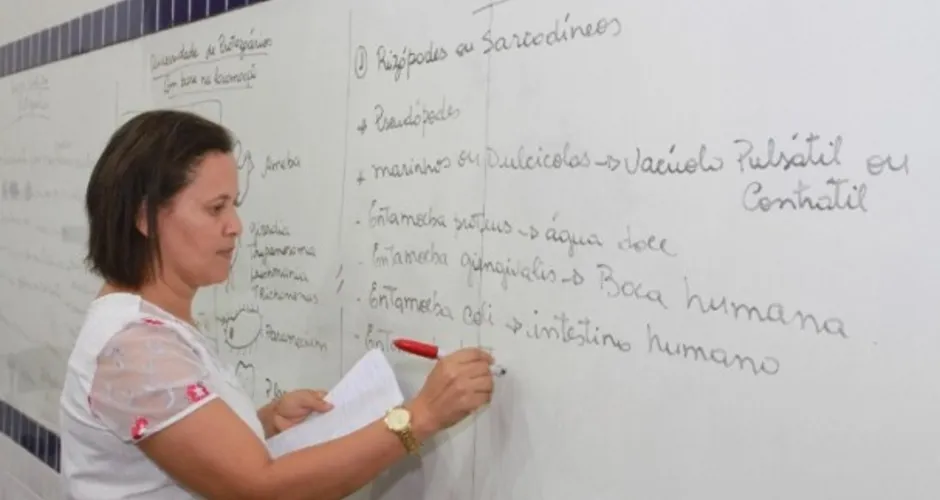 Diversidade de Protozoários
Com base na locomoção
Ameba
Giardia
Trypanosoma
Leishmânia
Trichomonas
Paramecium
① Rizópodes ou Sarcodíneos
→ Pseudópodes
+ marinhos ou Dulcícolas → Vacúolo Pulsátil ou
Contratil
- Entamoeba proteus → água doce
- Entamoeba gengivalis → Boca humana
- Entamoeba coli → intestino humano